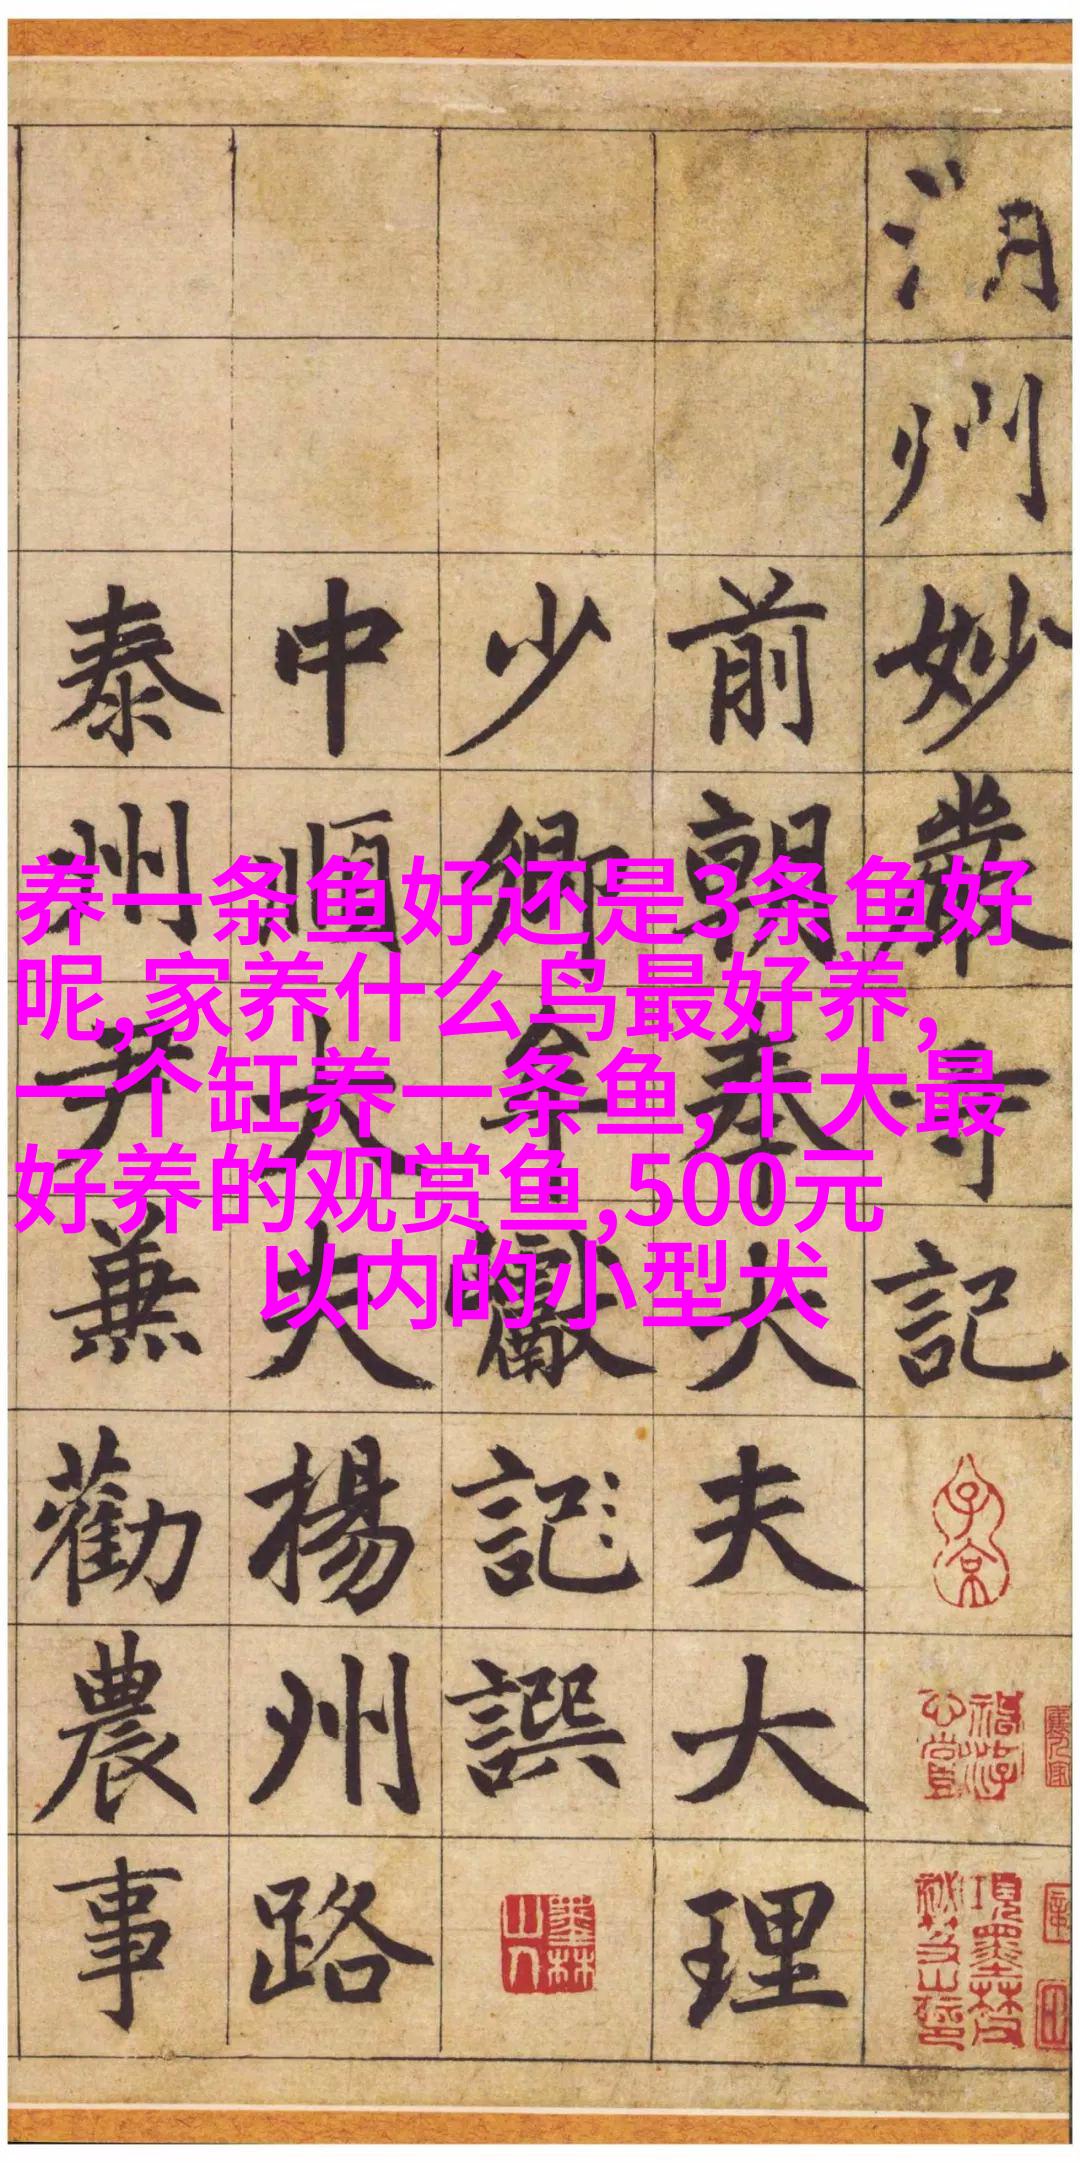 湖州妙嚴寺記
前朝奉大夫大理
少卿牟巘記譔
中順大夫揚州路
泰州尹兼勸農事
子京
墨林山人
养一条鱼好还是3条鱼好
呢,家养什么鸟最好养,
一个缸养一条鱼,十大最
好养的观赏鱼,500元
以内的小型犬